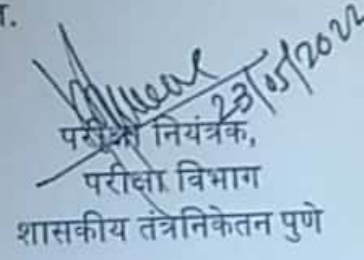 23/05/2022
परीक्षा नियंत्रक,
परीक्षा विभाग
शासकीय तंत्रनिकेतन पुणे